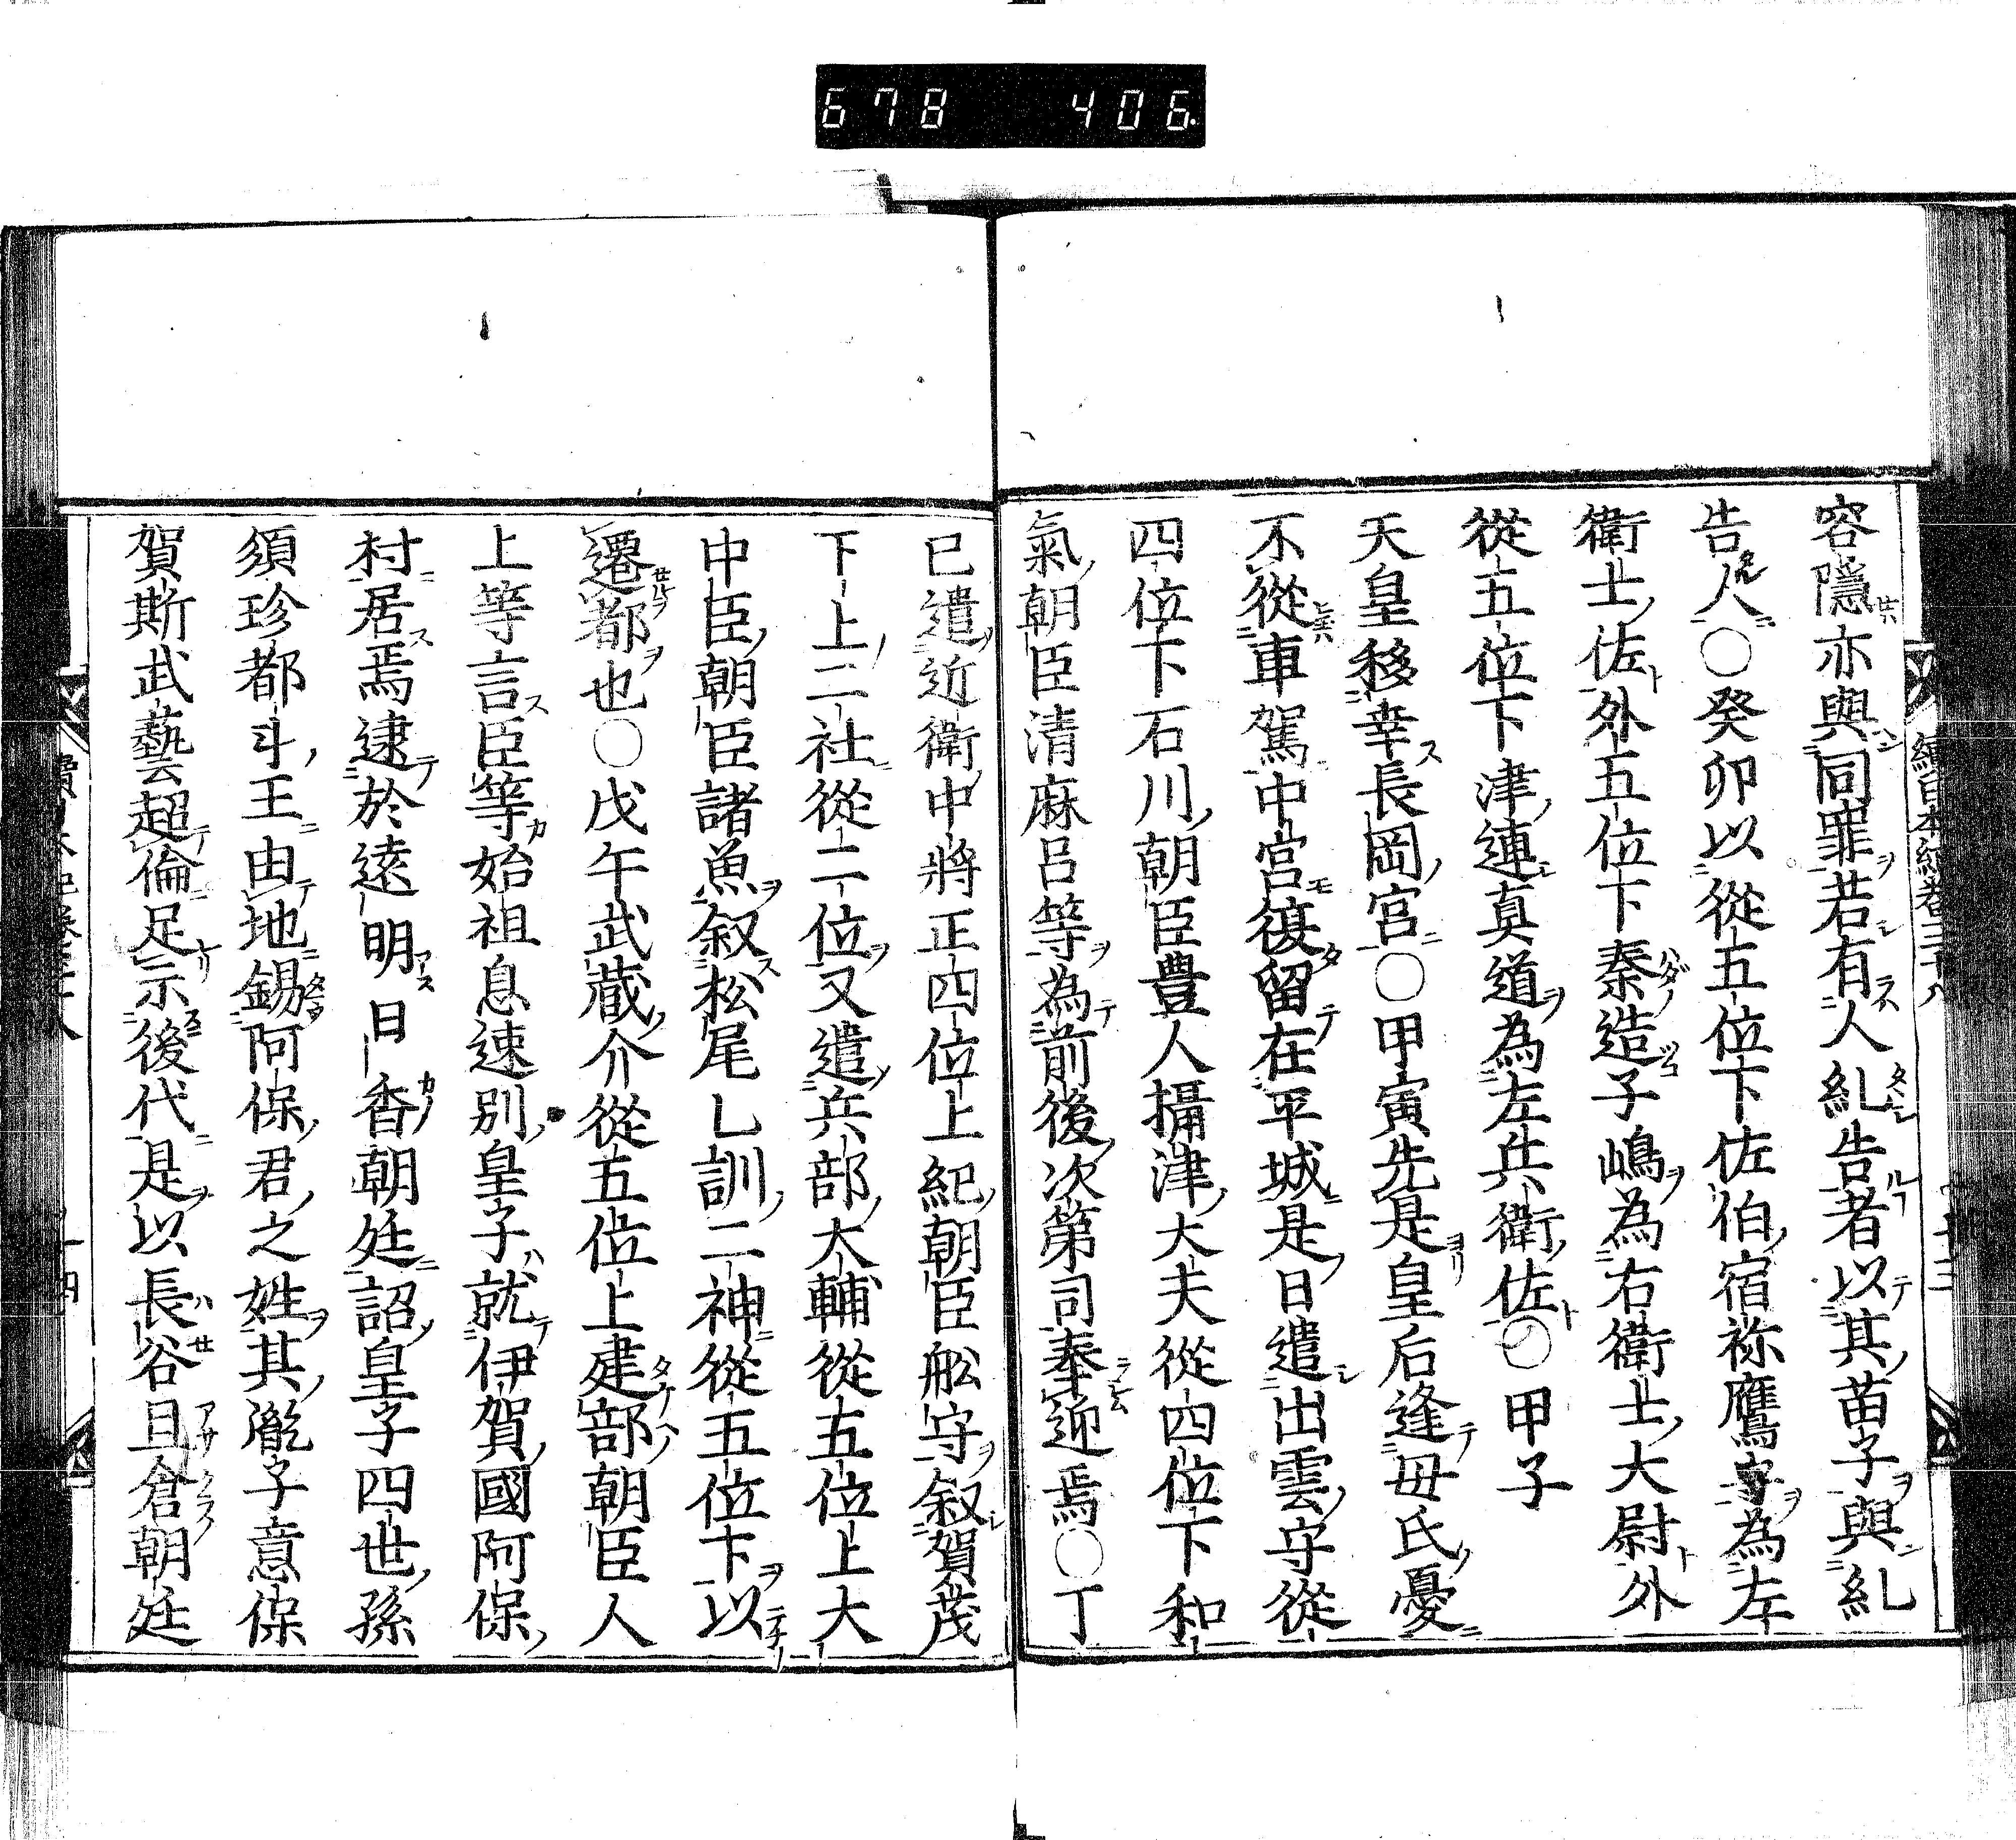 678 406.
容隱亦與同罪若有人糺告者以其苗子與糺
告人〇癸卯以從五位下佐伯宿祢鷹守為左
衛士佐外五位下秦造子嶋為右衛士大尉外
從五位下津連真道為左兵衛佐〇甲子
天皇移幸長岡宮〇甲寅先是皇后逢毋氏憂
不從車駕中宮復留在平城是日遣出雲守從
四位下石川朝臣豊人攝津大夫從四位下和
氣朝臣清麻呂等為前後次第司奉迎焉〇丁
巳遣近衛中將正四位上紀朝臣舩守叙賀茂
下上二社從二位又遣兵部大輔從五位上大
中臣朝臣諸魚叙松尾乚訓二神從五位下以
遷都也〇戊午武藏介從五位上建部朝臣人
上等言臣等始祖息速別皇子就伊賀國阿保
村居焉逮於遠明日香朝廷詔皇子四世孫
須珍都斗王由地錫阿保君之姓其胤子意保
賀斯武藝超倫足示後代是以長谷旦倉朝廷